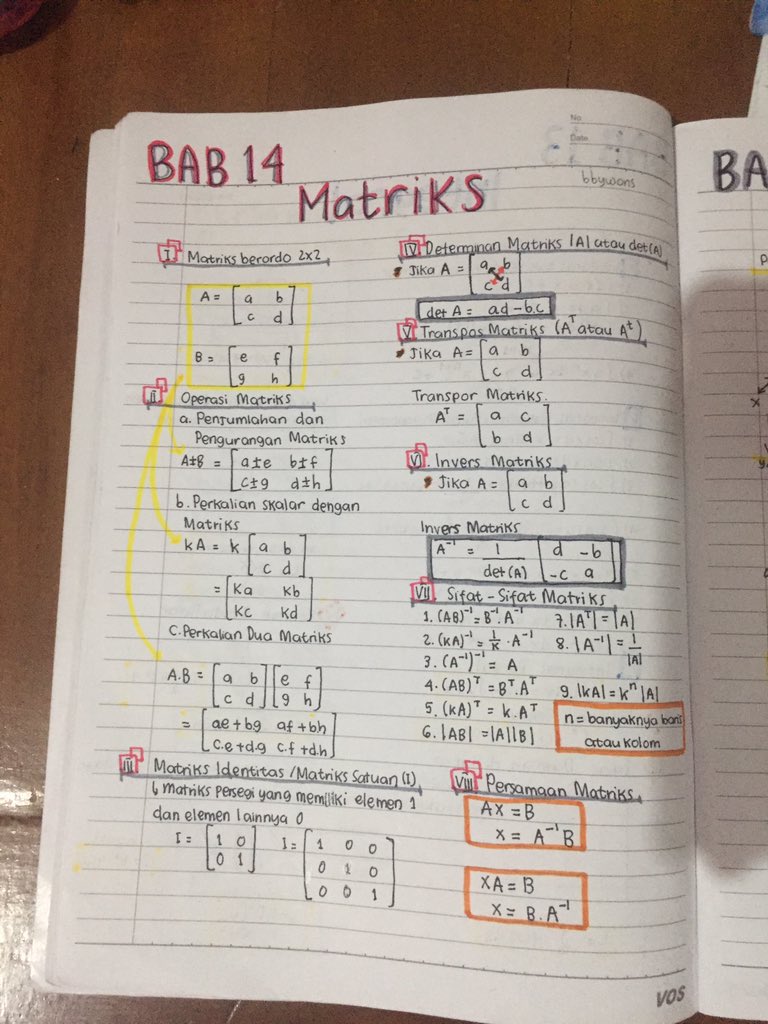 No
Date
bbywons
BAB 14
Matriks
I Matriks berordo 2x2
A = [a b
c d]
B = [e f
g h]
II Operasi Matriks
a. Penjumlahan dan
Pengurangan Matriks
A±B = [a±e b±f
c±g d±h]
b. Perkalian skalar dengan
Matriks
kA = k [a b
c d]
= [Ka Kb
Kc Kd]
C. Perkalian Dua Matriks
A.B = [a b
c d] [e f
g h]
= [ae+bg af+bh
c.e+d.g c.f+d.h]
III Matriks Identitas / Matriks Satuan (I)
↳ matriks persegi yang memiliki elemen 1
dan elemen lainnya 0
I = [1 0
0 1]
I = [1 0 0
0 1 0
0 0 1]
IV Determinan Matriks |A| atau det(A)
Jika A = [a b
c d]
det A = ad - b.c
V Transpos Matriks (Aᵀ atau Aᵗ)
Jika A = [a b
c d]
Transpor Matriks.
Aᵀ = [a c
b d]
VI. Invers Matriks
Jika A = [a b
c d]
Invers Matriks
A⁻¹ = 1/det(A) [d -b
-c a]
VII Sifat-Sifat Matriks
1. (AB)⁻¹ = B⁻¹. A⁻¹
2. (KA)⁻¹ = 1/K · A⁻¹
3. (A⁻¹)⁻¹ = A
4. (AB)ᵀ = Bᵀ. Aᵀ
5. (KA)ᵀ = k. Aᵀ
6. |AB| = |A||B|
7. |Aᵀ| = |A|
8. |A⁻¹| = 1/|A|
9. |kA| = kⁿ |A|
n = banyaknya baris
atau kolom
VIII Persamaan Matriks
AX = B
x = A⁻¹ B
XA = B
x = B. A⁻¹
VOS
BA